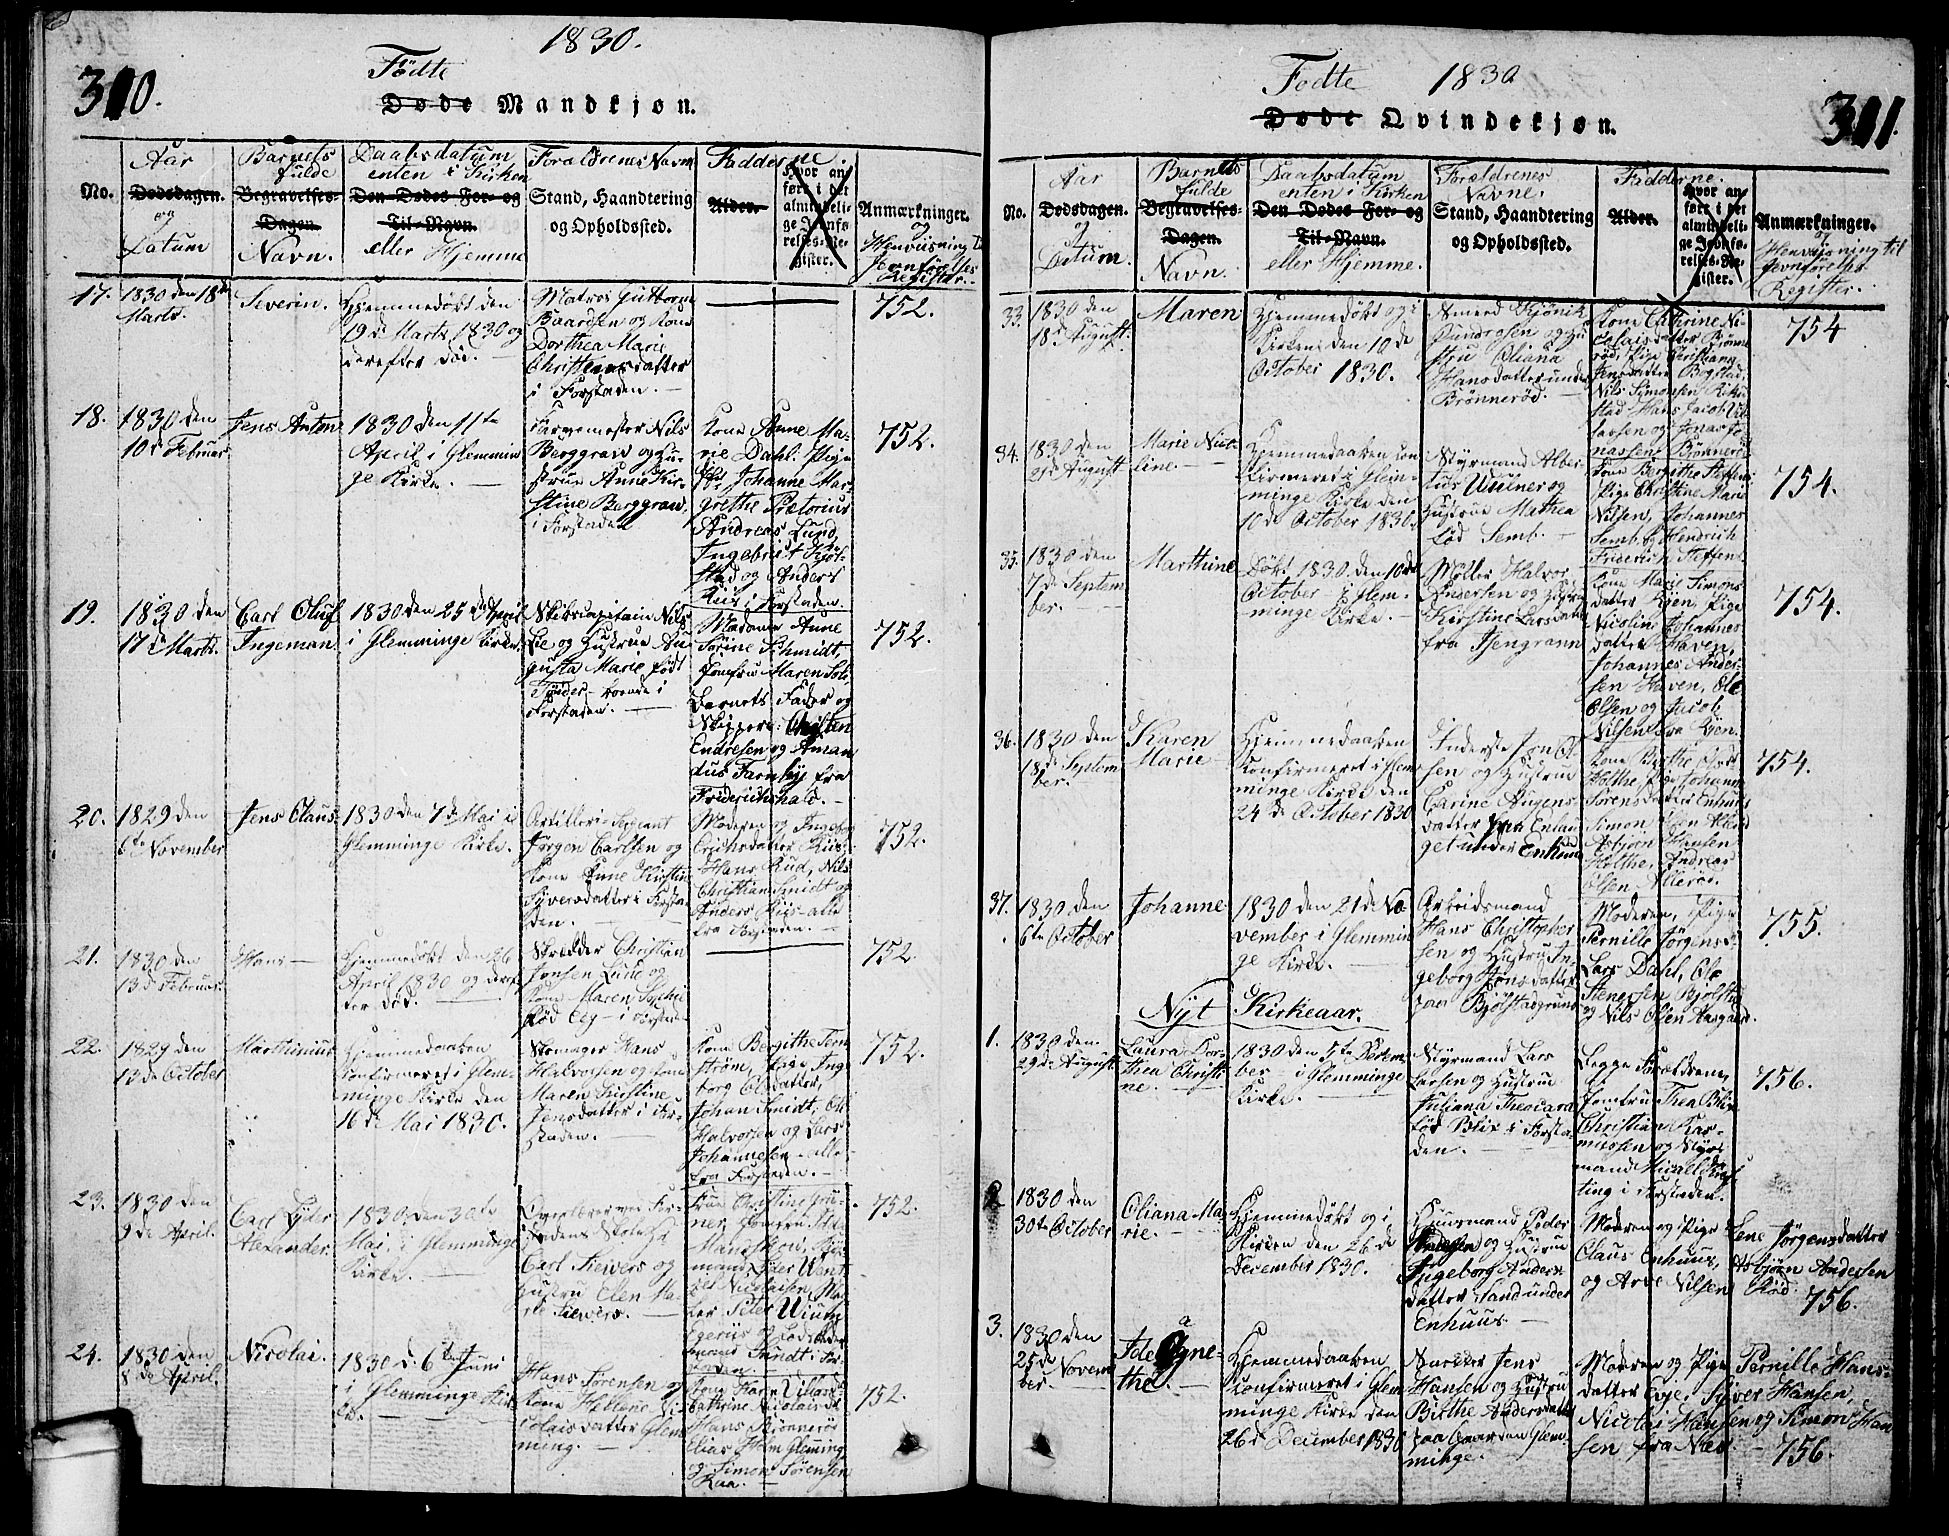 1830.
310.
Födte
Døde Mandkjøn.
No.
Aar
Dødsdagen.
og
Datum
Barnets
fulde
Begravelses-
Dagen.
Navn.
Daabsdatum
enten i Kirken
Den Dødes For- og
Til-Navn.
eller Hjemme
Forældrenes Navn
Stand, Haandtering
og Opholdssted.
Fadderne.
Alder.
Hvor an-
ført i det
almindeli-
ge Jevnfø-
relses-Re-
gister.
Anmærkninger.
og
Henviisning til
Jevnførelses
Register.
17.
1830 den 18de
Marts.
Severin.
Hjemmedøbt den
19 de Marts 1830 og
derefter död.
Matros Guttorm
Baardsen og Kone
Dorthea Marie
Christensdatter
i Forstaden.
752.
18.
1830 den
10 de Februar
Jens Anton
1830 den 11te
April i Glemmin
ge Kirke.
Farvemester Nils
Berggrav og Hu-
strue Anne Kir-
stine Berggrav,
i Forstaden
Kone Anne Ma-
rie Dahl. Pige
Johanne Mar-
grethe Prætorius
Andreas Lund,
Ingebrigt Kjöl-
stad og Anders
Riis i Forstaden.
752.
19.
1830 den
17 de Marts.
Carl Oluf
Ingeman
1830 den 25 de April
i Glemminge Kirke.
Skibscapitain Nils
Lie og Hustrue Au
gusta Marie född
Tønder boende i
Forstaden.
Madame Anne
Sörine Schmidt,
Jomfru Maren Lie,
Barnets Fader og
Skippere Christen
Endresen og Aman
dus Farnby fra
Friderichshald.
752.
20.
1829 den
6te November
Jens Claus
1830 den 7 de Mai i
Glemminge Kirke.
Artilleri-Sergeant
Jörgen Carlsen og
Kone Anne Kirstine
Syversdatter i Forsta
den.
Moderen og Ingeborg
Erichsdatter Riis,
Hans Rud, Nils
Christian Smidt og
Anders Riis - alle
fra Forstaden.
752.
21.
1830 den
13 de Februar
Hans
Hjemmedøbt den 26
April 1830 og deref
ter död.
Skrædder Christian
Jensen Lund og
Kone Maren Sophie
Född Eeg - i Forstad
752.
22.
1829 den
13 de October
Marthinius
Hjemmedaaben
confirmeret i Glem-
minge Kirke den
16 de Mai 1830.
Skomager Hans
Halvorsen og Kone
Maren Kirstine
Jensdatter i For-
staden.
Kone Bergithe Fern
ström, Pige Inge
borg Olsdatter,
Johan Smidt, Ole
Halvorsen og Lars
Johannesen - alle
fra Forstaden.
752.
23.
1830 den
9 de April.
Carl Peter
Alexander.
1830. den 30te
Mai, i Glemminge
Kirke.
Overlærer ved For-
stadens Skole Hr
Carl Siewers og
Hustru Elen Ma-
rie Siewers.
752.
24.
1830 den
8 de April.
Nicolai.
1830 d. 6te Juni
i Glemminge Kir
ke.
Hans Sörensen og
Kone Helene Ni-
colaisdatter Glem
ming.
Hans Brönneröd
Elias Holm Glemming
og Simon Sörensen
Raa.
752.
Födte
1830
Døde Qvindekjøn.
311.
No.
Aar
Dødsdagen.
og
Datum.
Barnets
fulde
Begravelses-
Dagen.
Navn.
Daabsdatum
enten i Kirken
Den Dødes For- og
Til-Navn.
eller Hjemme.
Forældrenes
Navne.
Stand, Haandtering
og Opholdssted.
Fadderne.
Alder.
Hvor an-
ført i det
almindeli-
ge Jevnfø-
relses-Re-
gister.
Anmærkninger.
og
Henviisning til
Jevnførelses
Register.
33.
1830 den
18 de August.
Maren
Hjemmedøbt og i
Kirken den 10 de
October 1830.
Smeed Kjönik
Gundersen og Hu
stru Oliana
Hansdatter under
Brönneröd.
Kone Cathrine Ni-
colaisdatter Brönne
röd, Pige Christiana
Jensdatter Bogstad,
Nils Simonsen Kirke
stad Hans Jacob Nil
lassen og Jonas Jo
nassen Brönneröd
754
34.
1830 den
21 de August
Marie Nico-
line.
Hjemmedaaben con
firmeret i Glem-
minge Kirke den
10 de October 1830.
Styrmand Alber
tus Unner og
Hustrue Mathea
Född Semb.
Kone Bergithe Steffens
Pige Christine Marie
Nilsen, Johannes
Semb og Hendrich
Friderich Steffens
754.
35.
1830 den
7 de Septem
ber.
Marthine
Döbt 1830 den 10 de
October i Glem-
minge Kirke.
Møller Halvor
Andersen og Hustrue
Kirstine Larsdatter
fra Tjengrann
Kone Marie Simons
datter Lÿen, Pige
Nicoline Johannes
datter Haven,
Johannes Ander-
sen Haven, Ole
Olsen og Jacob
Nilsen fra Lÿen.
754.
36.
1830 den
18 de Septem
ber.
Karen
Marie
Hjemmedaaben
confirmeret i Glem
minge Kirke den
24 de October 1830
Inderste Jens Ol
sen og Hustrue
Carine Augens-
datter fra Enhuus
get under Enhuus
Kone Berthe Olsd.
Holthe, Pige Johanne
Sörensdatter Enhuus
Simon Olsen Alleröd
Asbjörn Hansen
Holthe, Andreas
Olsen Alleröd.
754.
37.
1830 den
6te October
Johanne
1830 den 21 de No
vember i Glemmin
ge Kirke.
Arbeidsmand
Hans Christopher
sen og Hustru In
geborg Hansdatter
paa Bjölstadgrund
Moderen, Pige
Pernille Jörgensd.
Lars Dahl, Ole
Stenersen Bjölstad
og Nils Olsen Aasgaard.
755.
Nyt Kirkeaar.
1.
1830 den
29 de August
Laura Dor-
thea Christi-
ne.
1830 den 5te Decem
ber i Glemminge
Kirke.
Styrmand Lars
Larsen og Hustrue
Juliana Thescard
Född Blix i Forsta-
den.
Begge Forældrene,
Jomfru Thea Blix
Christian Ras-
mussen og Styr
mand Mikkel
ting i Forstaden.
756.
2
1830 den
30te October
Oliana Ma-
rie.
Hjemmedøbt og i
Kirken den 26 de
December 1830.
Huusmand Peder
Andersen og Hustrue
Ingeborg Anders
datter Sand under
Enhuus
Moderen og Pige Lene Jörgensdatter
Claus Enhuus, Asbjörn Andersen
og Arve Nilsen Röd.
756.
3.
1830 den
25 de
Novem
ber.
Ide Agne-
the.
Hjemmedaaben
confirmeret i Glem
minge Kirke den
26 de December 1830
Snedker Jens
Hansen og Hustru
Birthe Andersdatter
paa Gaarden Glem-
minge.
Moderen og Pige Pernille Hans-
datter Evje, Syver Hansen,
Nicolai Hansen og Simon Han
sen fra Næs.
756.